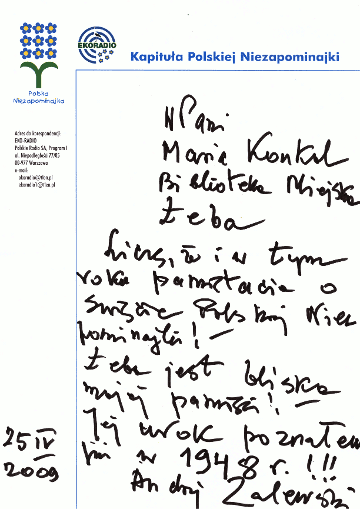 EKORADIO
Kapituła Polskiej Niezapominajki
Polska
Niezapominajka
Adres do korespondencji
EKO-RADIO
Polskie Radio SA, Program I
al. Niepodległości 77/85
00-977 Warszawa
e-mail:
ekoradio@tlen.pl
ekoradio1@tlen.pl
Pani
Maria Konkol
Biblioteka Miejska
Łeba
Liczę, że i w tym
roku pamiętacie o
święcie Polskiej Niez
pominajki! –
Łeba jest bliska
mojej pamięci! –
Jej urok poznałem
już w 1948 r. !!!
Andrzej Zalewski
25 IV
2009